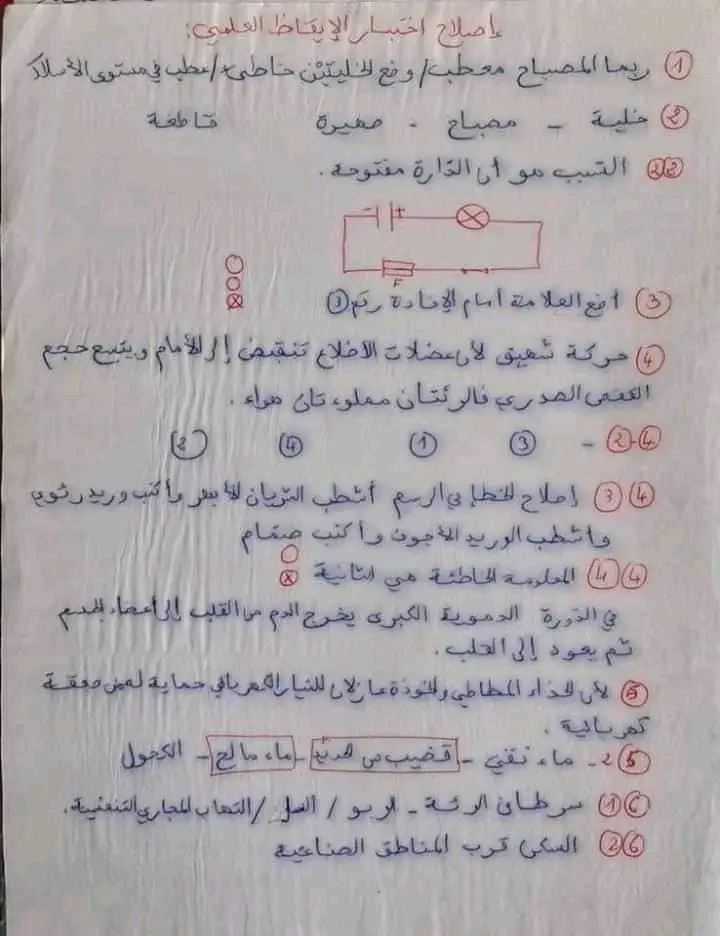 إصلاح اختبار الإيقاظ العلمي:
① ربما المصباح معطب/وضع الخليتين خاطئ/عطب في مستوى الأسلاك
② خلية - مصباح - صهيرة قاطعة
②② السبب هو أن الدّارة مفتوحة.
- + F
③ أضع العلامة أمام الإفادة رقم ③
④ حركة شهيق لأن عضلات الأضلاع تنقبض إلى الأمام ويتسع حجم
القفص الصدري فالرئتان مملوءتان هواء.
④-② - ③ ① ④ ②
④③ إصلاح الخطإ في الرسم أشطب الشريان الأبهر وأكتب وريد رئوي
وأشطب الوريد الأجوف وأكتب صمّام
④④ المعلومة الخاطئة هي الثانية
في الدّورة الدموية الكبرى يخرج الدم من القلب إلى أعضاء الجسم
ثم يعود إلى القلب.
⑤ لأن الحذاء المطاطي والخوذة عازلان للتيار الكهربائي حماية له من صعقة
كهربائية.
⑤2- ماء نقي - قضيب من الحديد - ماء مالح - الكحول
⑥① سرطان الرئة - الربو / السل / التهاب المجاري التنفسية.
⑥② السكن قرب المناطق الصناعية